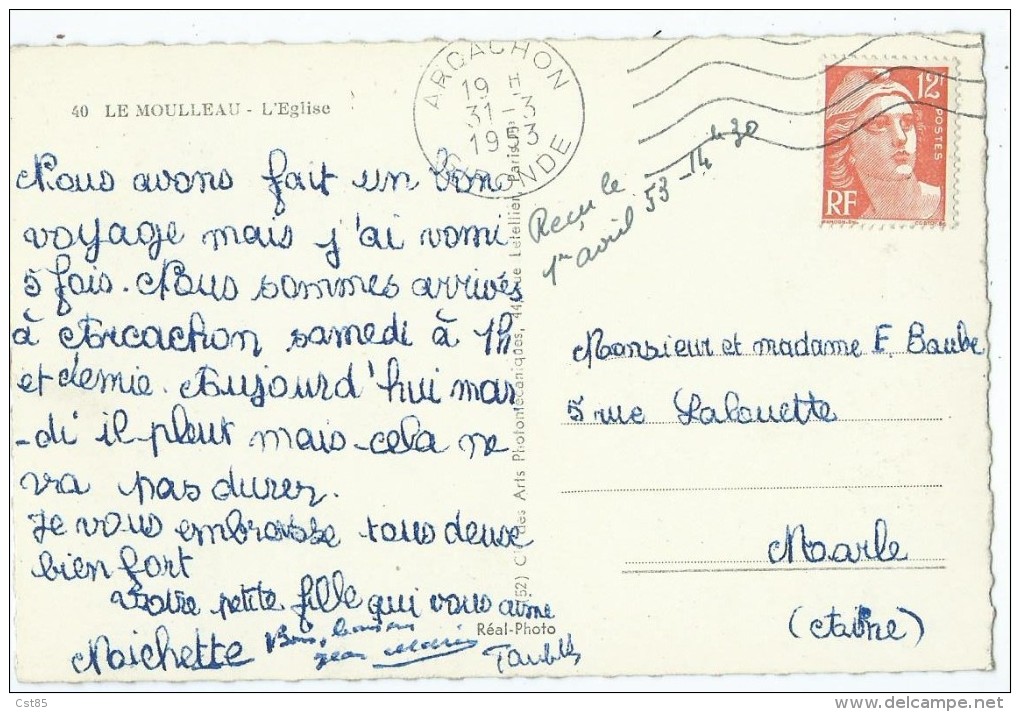 40 LE MOULLEAU - L'Eglise
ARCACHON
19 H
31 - 3
1953
GIRONDE
12F
POSTES
RF
Reçu le
1er avril 53 - 14 h 30
Nous avons fait un bon
voyage mais j'ai vomi
5 fois. Nous sommes arrivés
à Arcachon samedi à 1h
et demie. Aujourd'hui mar
-di il pleut mais cela ne
va pas durer.
Je vous embrasse tous deux
bien fort
Votre petite fille qui vous aime
Naichette
Bons baisers
Jean Marie
Monsieur et madame F. Baube
5 rue Lalouette
Marle
(Aisne)
(52) des Arts Photomécaniques, 44, rue Letellier, Paris
Réal-Photo
Cst85
www.delcampe.net